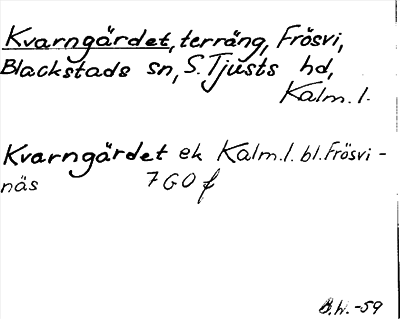 Kvarngärdet, terräng, Frösvi,
Blackstads sn, S. Tjusts hd,
Kalm. l.
Kvarngärdet ek Kalm. l. bl. Frösvi-
näs 7 G O f
B.W. -59